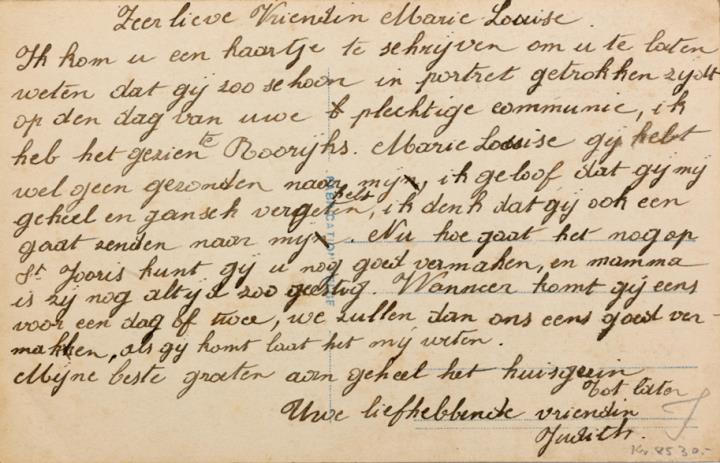 Zeer lieve Vriendin Marie Louise.
Ik kom u een kaartje te schrijven om u te laten
weten dat gij zoo schoon in portret getrokken zijdt
op den dag van uwe plechtige communie, ik
heb het gezien te Roorijks. Marie Louise gij hebt
wel geen gezonden naar mijn, ik geloof dat gij mij
geheel en gansch vergeten hebt, ik denk dat gij ook een
gaat zenden naar mijn. Nu hoe gaat het nog op
St Jooris kunt gij u nog goed vermaken, en mamma
is zij nog altijd zoo geestig. Wanneer komt gij eens
voor een dag of twee, we zullen dan ons eens goed ver-
makken, als gij komt laat het mij weten.
Mijne beste groeten aan geheel het huisgezin
Tot later
Uwe liefhebbende vriendin
Judith.